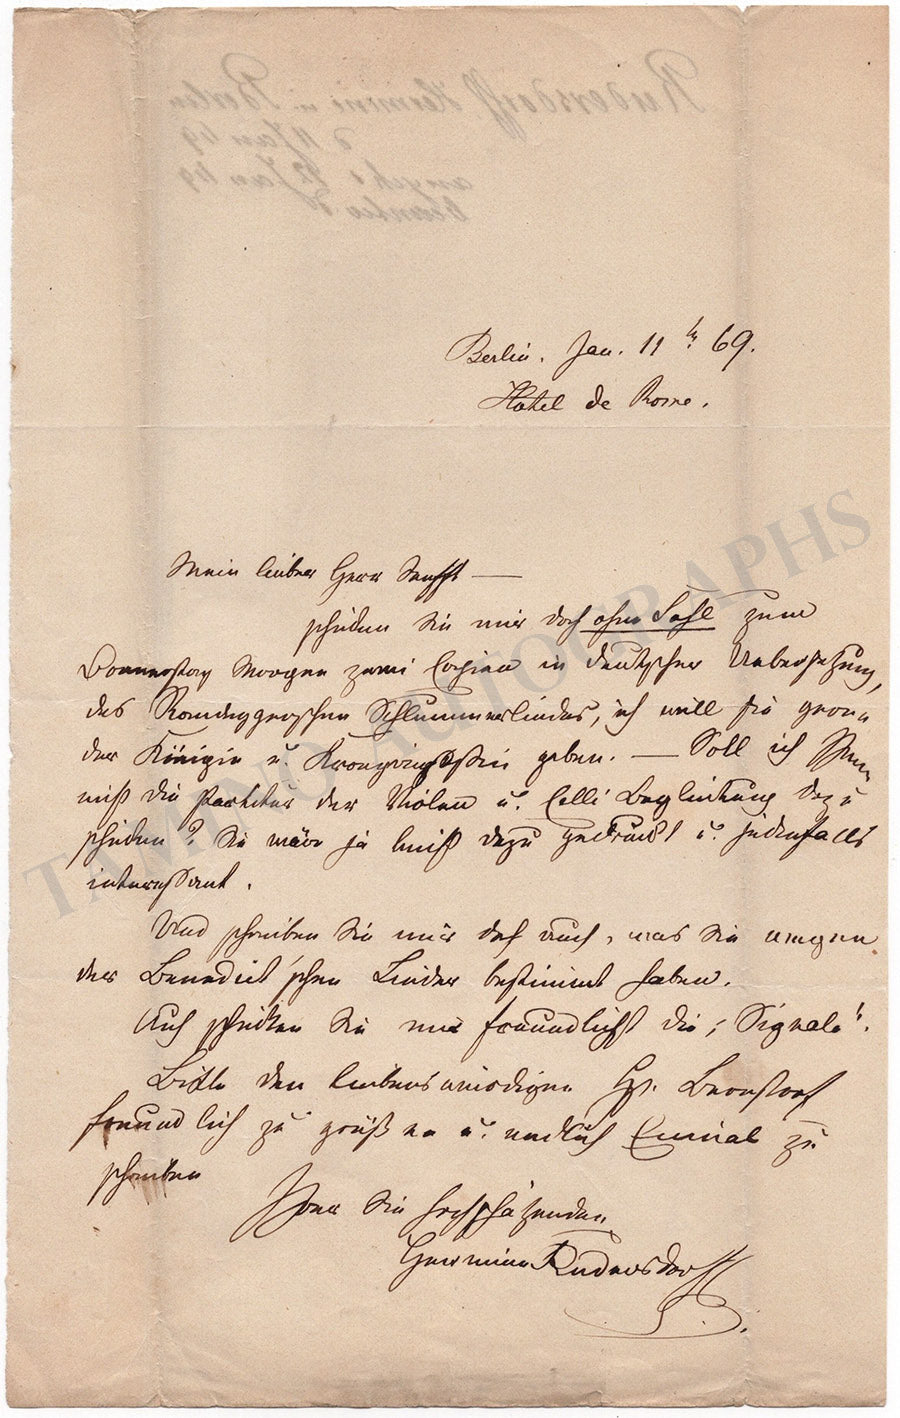 Berlin. Jan. 11th 69.
Hotel de Rome.
Mein lieber Herr Senff —
schicken Sie mir doch ohne Fehl zum
Donnerstag Morgen zwei Copien in deutscher Uebersetzung,
des Randeggerschen Schlummerliedes, ich will sie gern
der Königin u. Kronprinzessin geben. — Soll ich Ihnen
nicht die Partitur der Violen u. Celli Begleitung dazu
schicken? Sie wäre ja leicht dazu gedruckt u. jedenfalls
interessant.
Und schreiben Sie mir doch auch, was Sie wegen
der Benedict'schen Lieder bestimmt haben.
Auch schicken Sie mir freundlichst die „Signale".
Bitte den liebenswürdigen Hr. Bernsdorf
freundlich zu grüßen u. endlich Einmal zu
schreiben
Ihrer Sie hochschätzenden
Hermine Rudersdorff
TAMINO AUTOGRAPHS